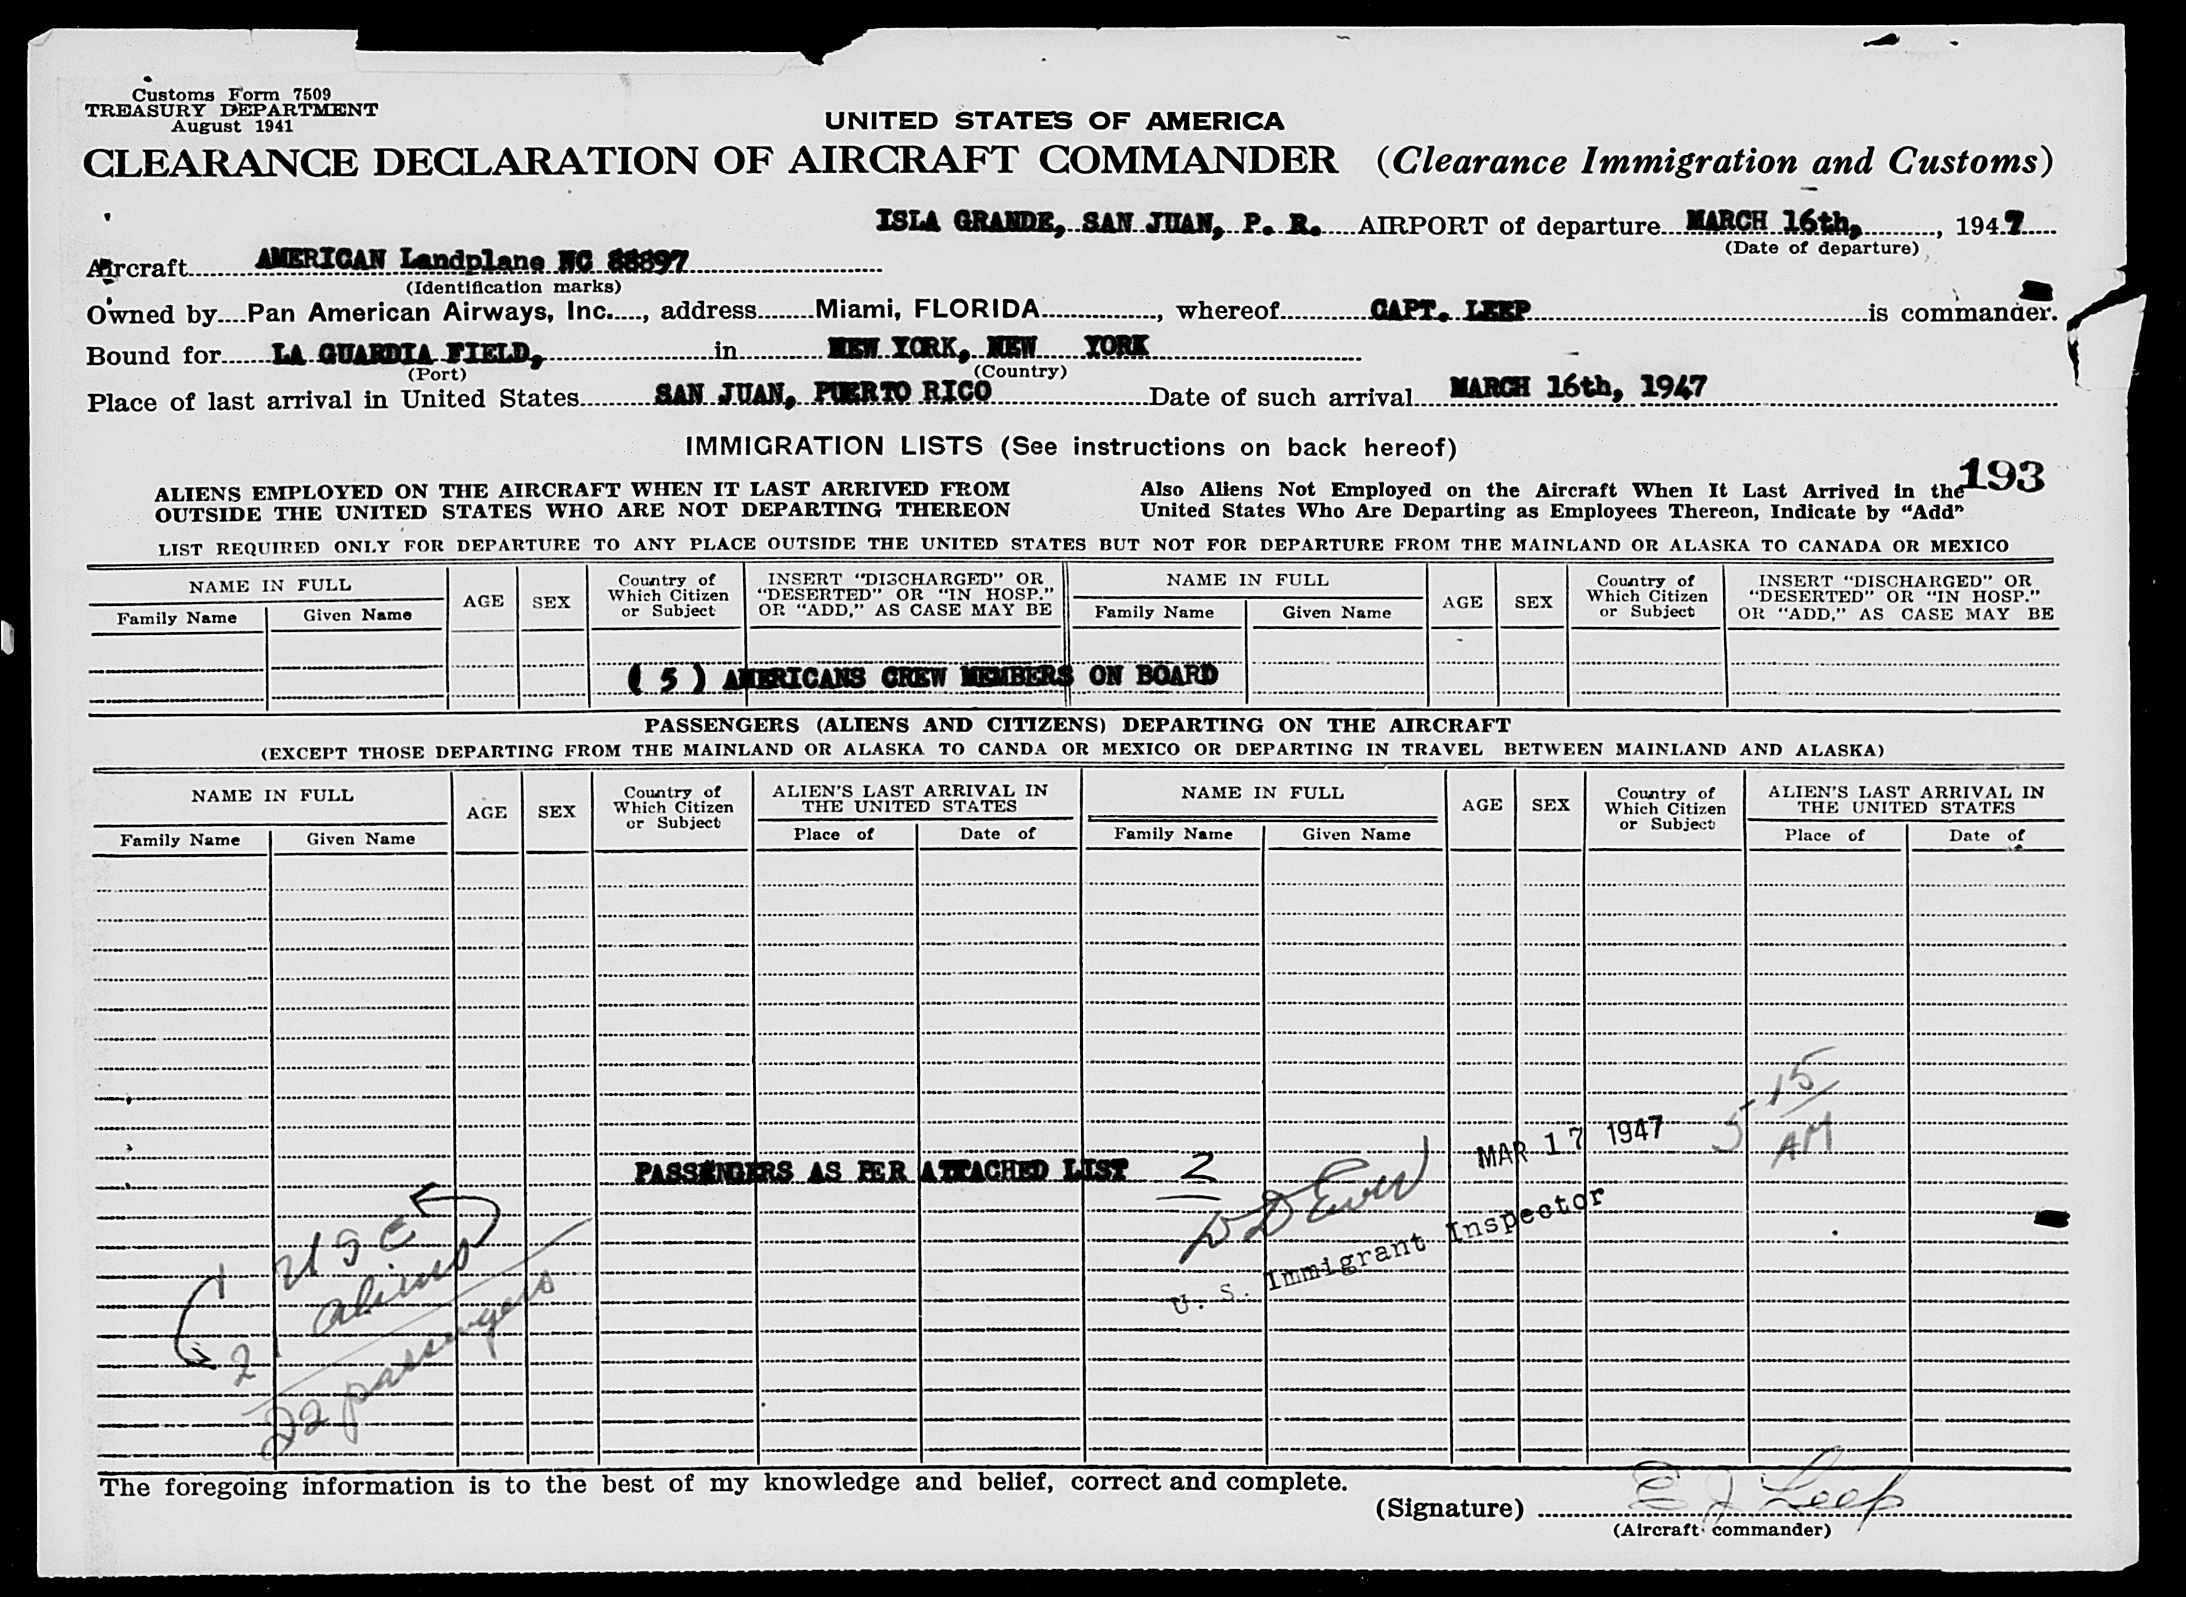 Customs Form 7509
TREASURY DEPARTMENT
August 1941
UNITED STATES OF AMERICA
CLEARANCE DECLARATION OF AIRCRAFT COMMANDER (Clearance Immigration and Customs)
ISLA GRANDE, SAN JUAN, P. R. AIRPORT of departure MARCH 16th, , 1947
(Date of departure)
Aircraft AMERICAN Landplane NC 88897
(Identification marks)
Owned by Pan American Airways, Inc. , address Miami, FLORIDA , whereof CAPT. LEEP is commander.
Bound for LA GUARDIA FIELD, in NEW YORK, NEW YORK
(Port) (Country)
Place of last arrival in United States SAN JUAN, PUERTO RICO Date of such arrival MARCH 16th, 1947
IMMIGRATION LISTS (See instructions on back hereof)
193
ALIENS EMPLOYED ON THE AIRCRAFT WHEN IT LAST ARRIVED FROM Also Aliens Not Employed on the Aircraft When It Last Arrived in the
OUTSIDE THE UNITED STATES WHO ARE NOT DEPARTING THEREON United States Who Are Departing as Employees Thereon, Indicate by "Add"
LIST REQUIRED ONLY FOR DEPARTURE TO ANY PLACE OUTSIDE THE UNITED STATES BUT NOT FOR DEPARTURE FROM THE MAINLAND OR ALASKA TO CANADA OR MEXICO
NAME IN FULL AGE SEX Country of Which Citizen or Subject INSERT "DISCHARGED" OR "DESERTED" OR "IN HOSP." OR "ADD," AS CASE MAY BE NAME IN FULL AGE SEX Country of Which Citizen or Subject INSERT "DISCHARGED" OR "DESERTED" OR "IN HOSP." OR "ADD," AS CASE MAY BE
Family Name Given Name Family Name Given Name
( 5 ) AMERICANS CREW MEMBERS ON BOARD
PASSENGERS (ALIENS AND CITIZENS) DEPARTING ON THE AIRCRAFT
(EXCEPT THOSE DEPARTING FROM THE MAINLAND OR ALASKA TO CANDA OR MEXICO OR DEPARTING IN TRAVEL BETWEEN MAINLAND AND ALASKA)
NAME IN FULL AGE SEX Country of Which Citizen or Subject ALIEN'S LAST ARRIVAL IN THE UNITED STATES NAME IN FULL AGE SEX Country of Which Citizen or Subject ALIEN'S LAST ARRIVAL IN THE UNITED STATES
Family Name Given Name Place of Date of Family Name Given Name Place of Date of
5 15 AM
MAR 17 1947
PASSENGERS AS PER ATTACHED LIST 2
U. S. Immigrant Inspector
1 USC
21 aliens
22 passengers
The foregoing information is to the best of my knowledge and belief, correct and complete.
(Signature) E J Leep
(Aircraft commander)